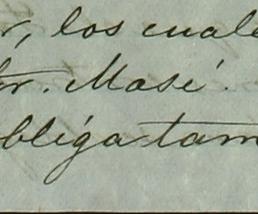 r, los cuale
or. Masé.
obliga tam